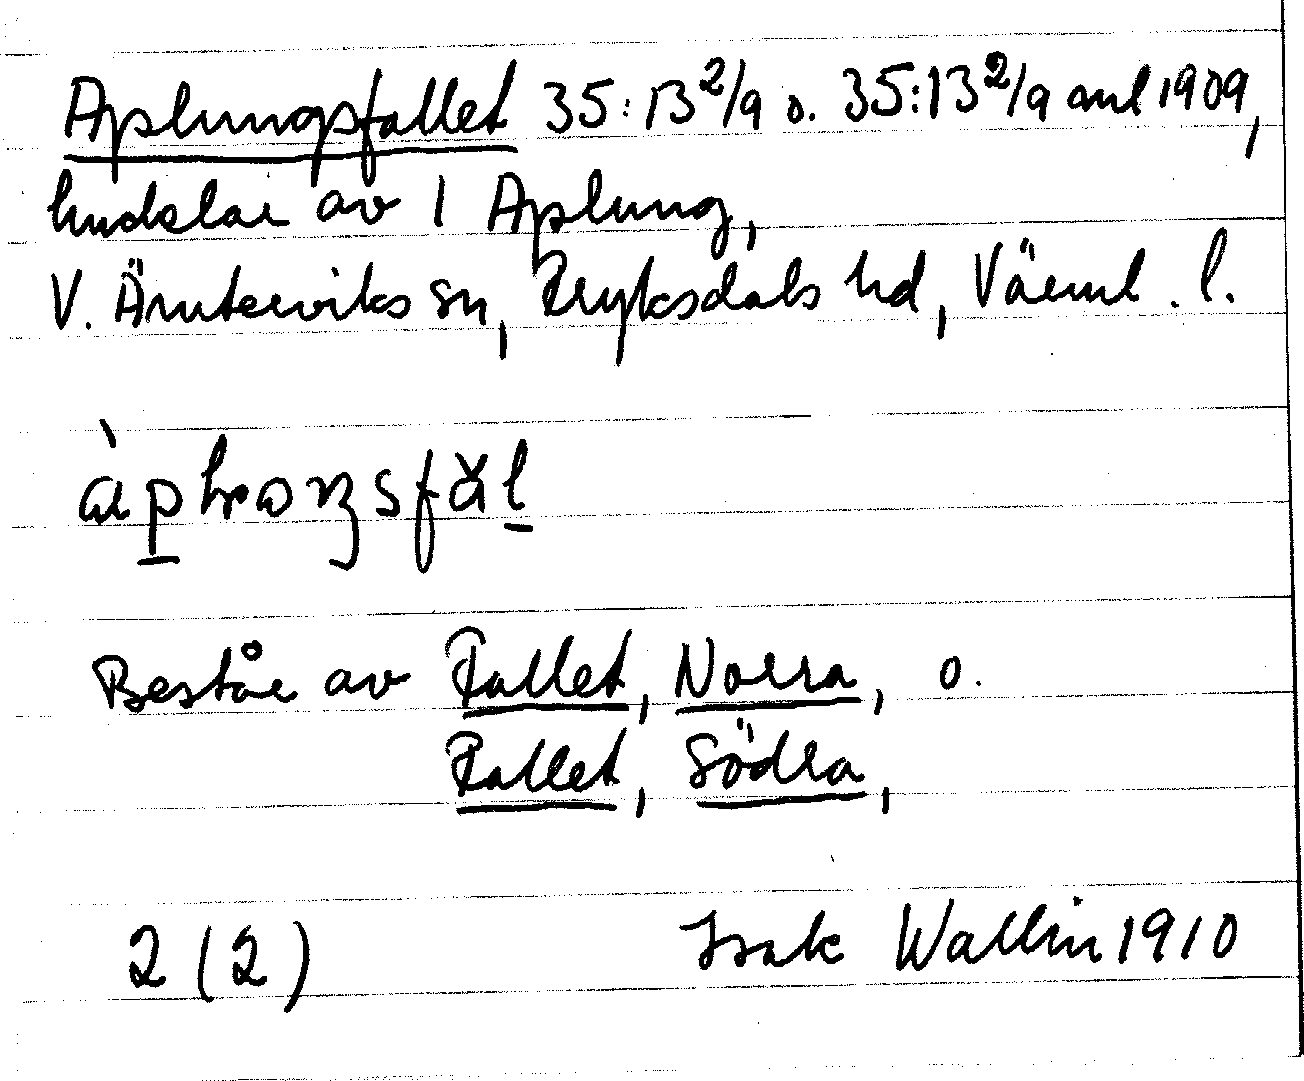 Aplungsfallet 35:13²/9 o. 35:13²/9 anl 1909,
hudelar av 1 Aplung,
V. Ämterviks sn, Fryksdals hd, Värml. l.
Består av Fallet, Norra, o.
Fallet, Södra,
2 (2) Isak Wallin 1910